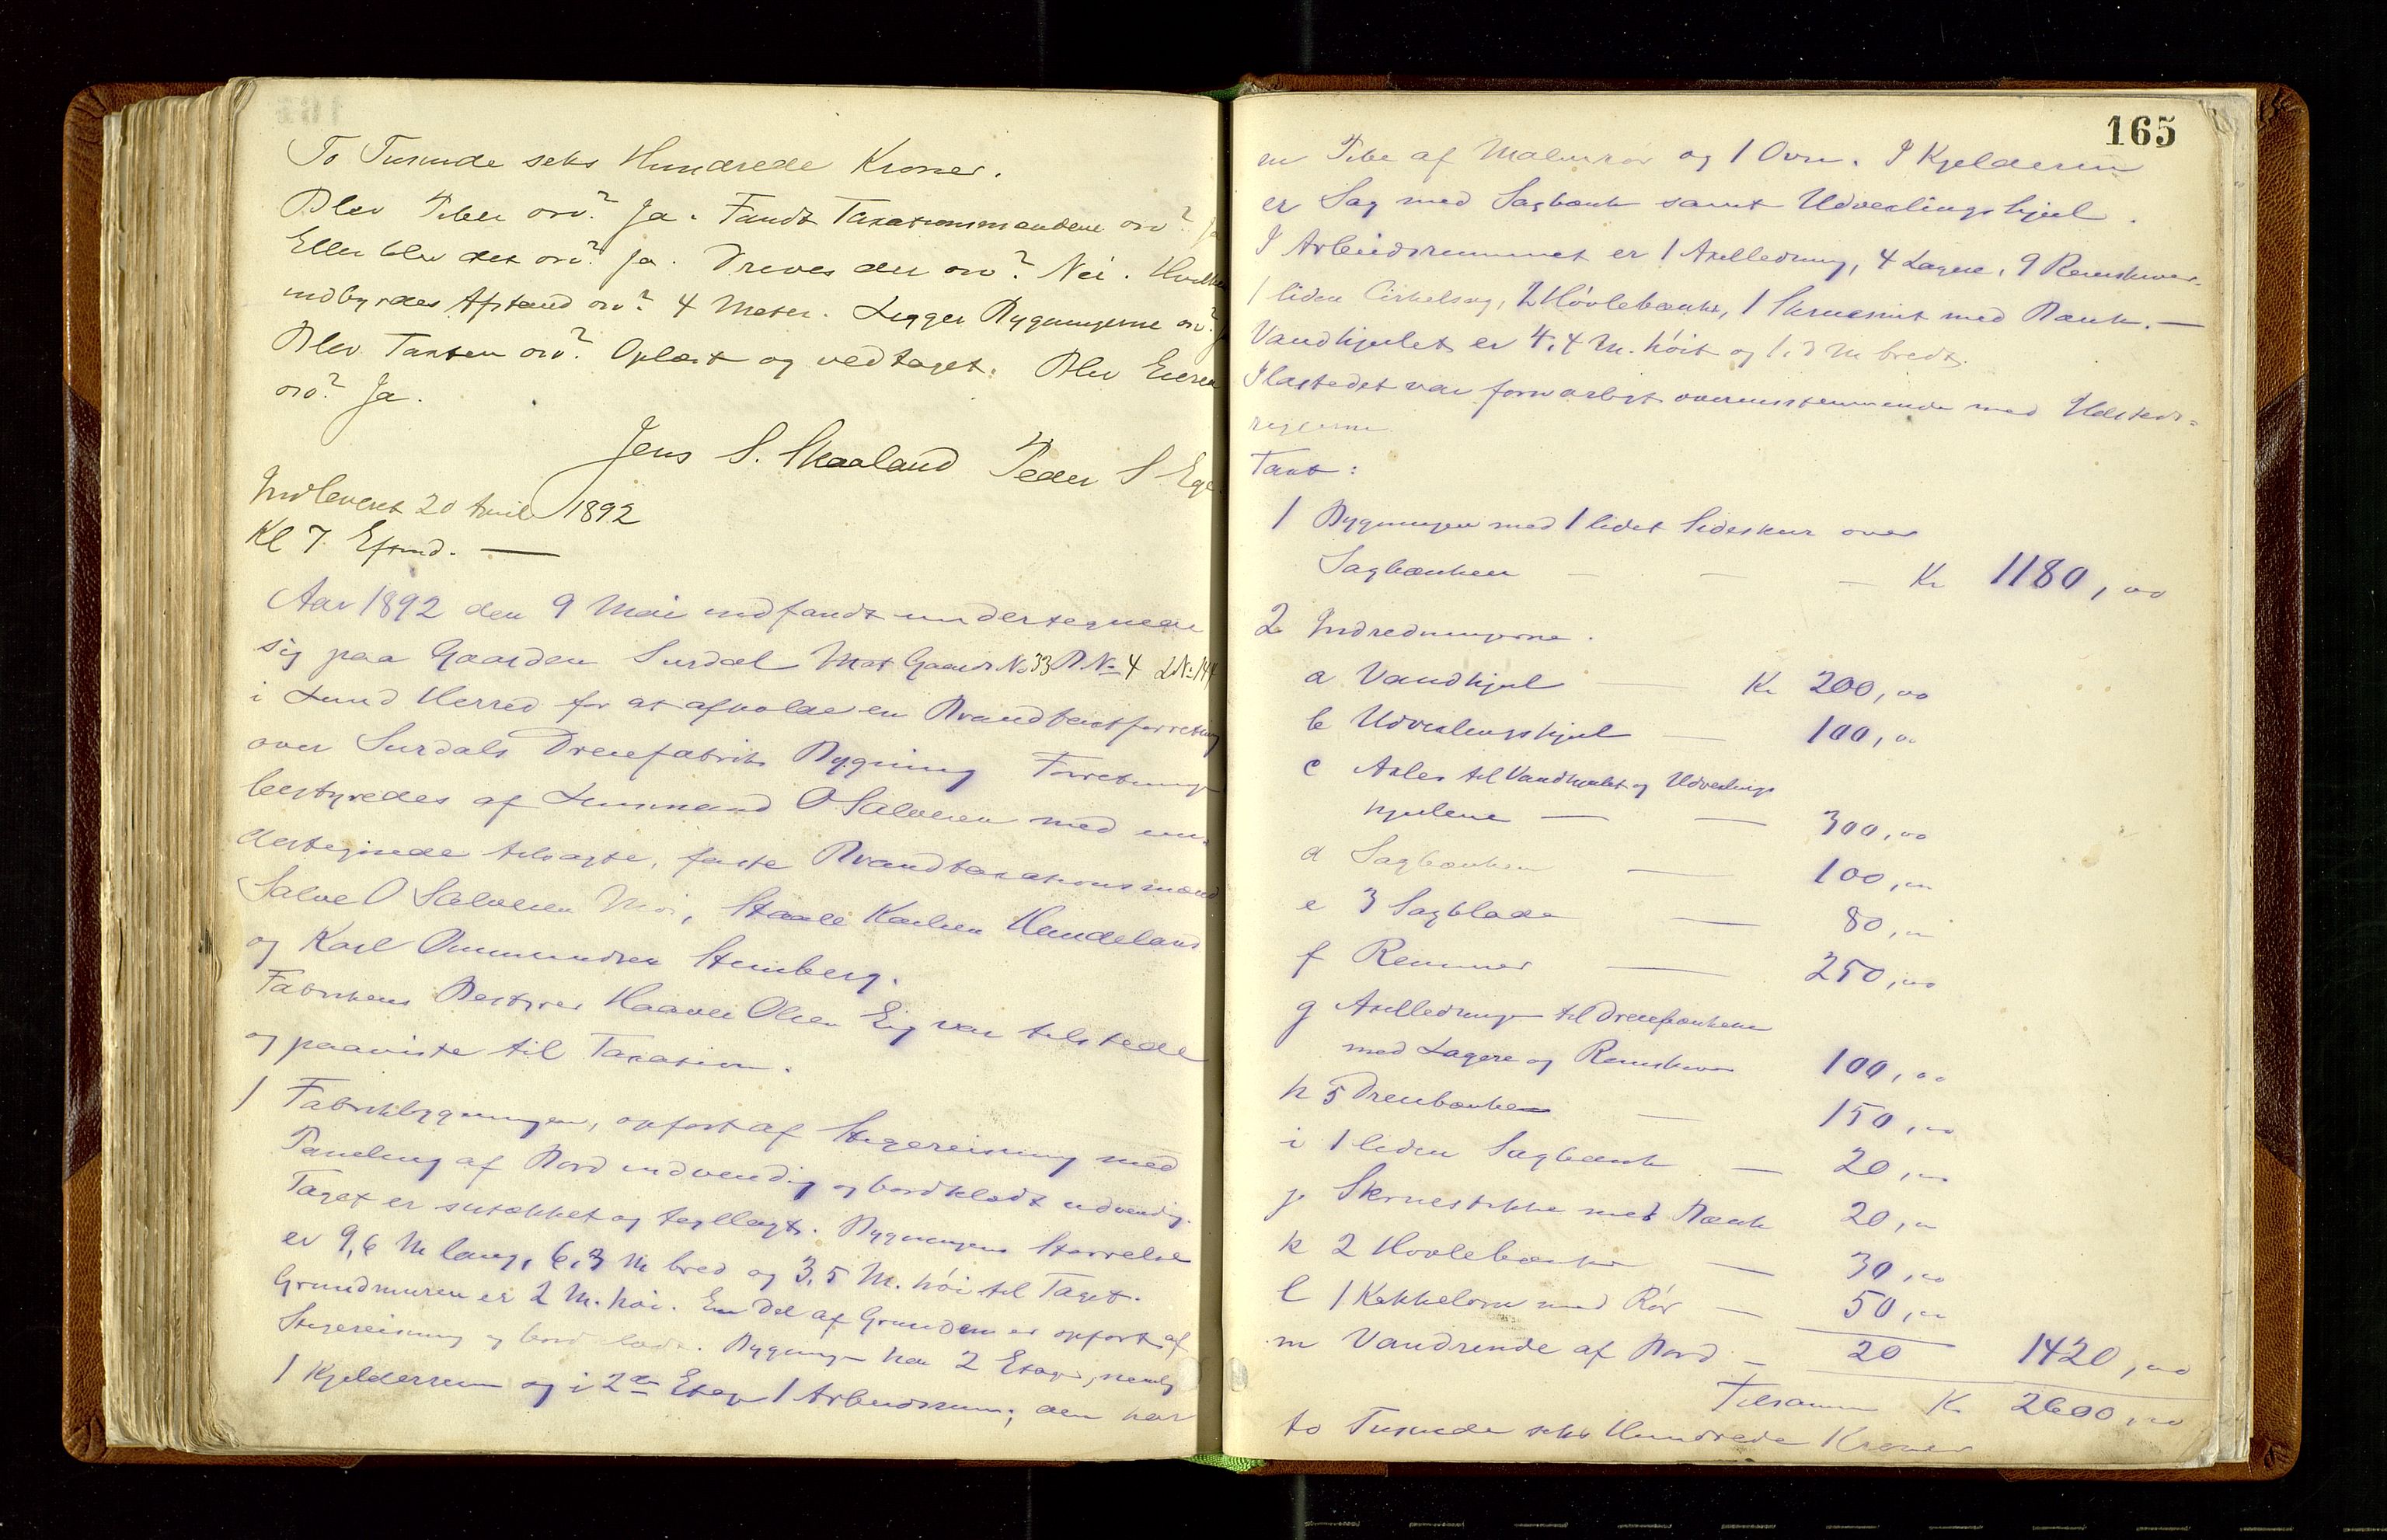 To Tusinde seks Hundrede Kroner.
Blev Piber osv? Ja. Fandt Taxationsmændene osv?
Eller blev det osv? Ja. Dreves der osv? Nei. Hvilken
indbyrdes Afstand osv? 4 Meter. Ligger Bygningerne osv?
Blev Taxten osv? Oplæst og vedtaget. Blev Eieren
osv? Ja.
Jens S. Skaaland Peder S Ege
Indleveret 20 April 1892
Kl 7 Efmd. —
Aar 1892 den 9 Mai indfandt undertegnede
sig paa Gaarden Surdal Mat Gaards No 33 B. No 4 LNo 144
i Lund Herred for at afholde en Brandtaxtforretning
over Surdals Dreiefabriks Bygning Forretningen
bestyredes af Lensmand O Salvesen med un-
dertegnede tilsagte, faste Brandtaxationsmænd
Salve O Salvesen Moi, Staale Karlsen Handeland
og Karl Ommundsen Stenberg.
Fabrikens Bestyrer Haaver Olsen Eig var tilstede
og paaviste til Taxation.
1 Fabrikbygningen, opført af Stigereisning med
Paneling af Bord indvendig og bordklædt udvendig.
Taget er sutækket og tegllagt. Bygningens Størrelse
er 9,6 M lang, 6,3 M bred og 3,5 M. høi til Taget.
Grundmuren er 2 M. høi. En Del af Grunden er opført af
Stigereisning og bord. Bygningen har 2 Etager, nemlig
1 Kjelderrum og i 2den Etage 1 Arbeidsrum; den har
165
en Pibe af Malmrør og 1 Ovn. I Kjelderen
er Sag med Sagbænk samt Udvexlingshjul.
I Arbeidsrummet er 1 Axelledning, 4 Lagere, 9 Remskiver.
1 liden Cirkelsag, 2 Høvlebænke, 1 Skruestik med Bænk. —
Vandhjulet er 4,4 M. høit og 1,3 M bredt.
Ilastedet var forsvarligt overensstemmende med Udskrif-
Taxt:
1 Bygningen med 1 lidet Sideskur over
Sagbænken — — — Kr 1180,00
2 Indredningerne.
a Vandhjul — Kr 200,00
b Udvexlingshjul — 100,00
c Axler til Vandhjulet og Udvexlings
hjulene — — 300,00
d Sagbænken — 100,00
e 3 Sagblade — 80,00
f Remmer — 250,00
g Axelledningen til Dreiebænkene
med Lagere og Remskiver 100,00
h 5 Dreiebænke — 150,00
i 1 liden Sagbænk — 20,00
j Skruestikke med Bænk 20,00
k 2 Høvlebænke — 30,00
l 1 Kakkelovn med Rør — 50,00
m Vandrende af Bord — 20 1420,00
Tilsammen Kr 2600,00
to Tusinde seks Hundrede Kroner